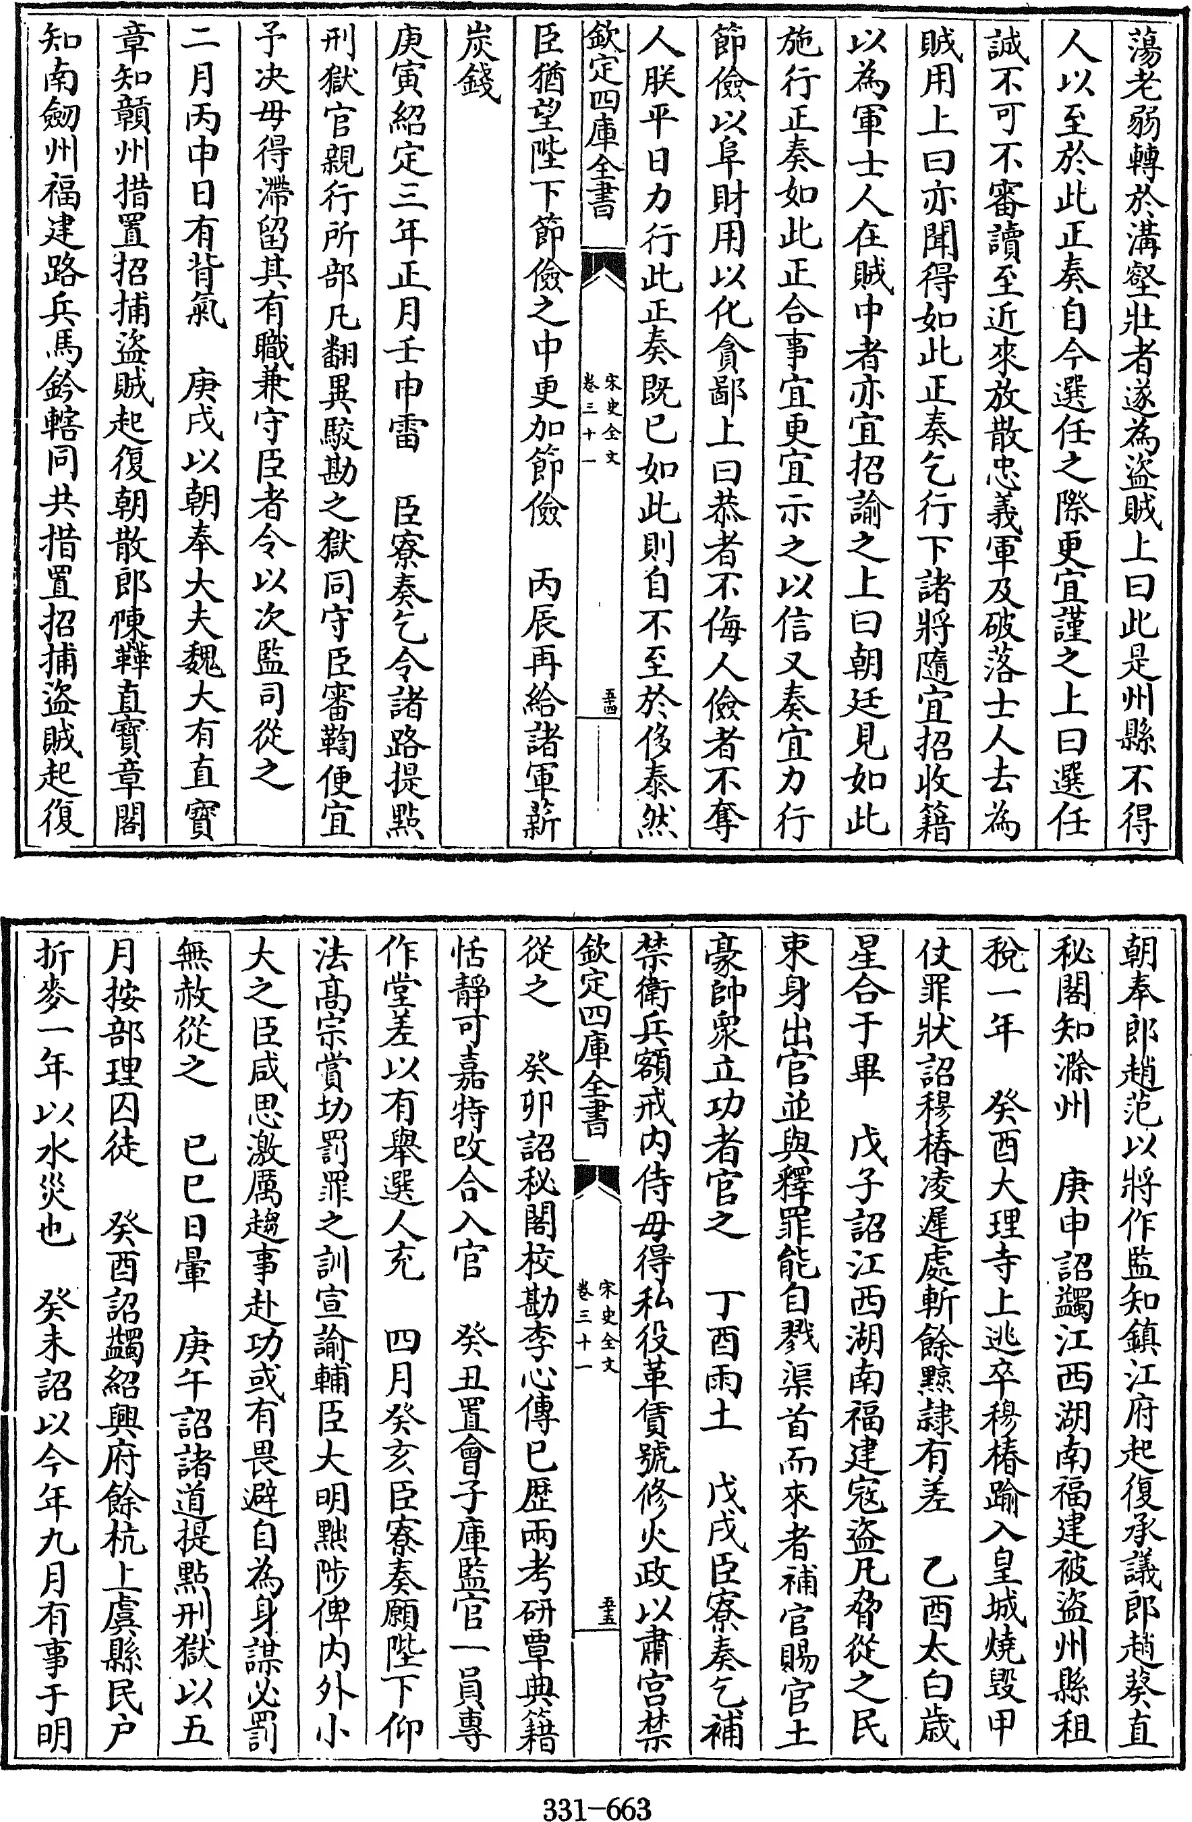 蕩老弱轉於溝壑壯者遂為盜賊上曰此是州縣不得
人以至於此正奏自今選任之際更宜謹之上曰選任
誠不可不審讀至近來放散忠義軍及破落士人去為
賊用上曰亦聞得如此正奏乞行下諸將隨宜招收籍
以為軍士人在賊中者亦宜招諭之上曰朝廷見如此
施行正奏如此正合事宜更宜示之以信又奏宜力行
節儉以阜財用以化貪鄙上曰恭者不侮人儉者不奪
人朕平日力行此正奏既已如此則自不至於侈泰然
欽定四庫全書
宋史全文
卷三十一
五十四
臣猶望陛下節儉之中更加節儉　丙辰再給諸軍薪
炭錢
庚寅紹定三年正月壬申雷　臣寮奏乞令諸路提點
刑獄官親行所部凡翻異駁勘之獄同守臣審鞫便宜
予決毋得滯留其有職兼守臣者令以次監司從之
二月丙申日有背氣　庚戌以朝奉大夫魏大有直寶
章知贛州措置招捕盜賊起復朝散郎陳韡直寶章閣
知南劒州福建路兵馬鈐轄同共措置招捕盜賊起復
朝奉郎趙范以將作監知鎮江府起復承議郎趙葵直
秘閣知滁州　庚申詔蠲江西湖南福建被盜州縣租
稅一年　癸酉大理寺上逃卒穆椿踰入皇城燒毀甲
仗罪狀詔穆椿凌遲處斬餘黥隷有差　乙酉太白歲
星合于畢　戊子詔江西湖南福建寇盜凡脅從之民
束身出官並與釋罪能自戮渠首而來者補官賜官土
豪帥衆立功者官之　丁酉雨土　戊戌臣寮奏乞補
禁衛兵額戒內侍毋得私役革賃號修火政以肅宮禁
欽定四庫全書
宋史全文
卷三十一
五十五
從之　癸卯詔秘閣校勘李心傳已歷兩考研覃典籍
恬靜可嘉特改合入官　癸丑置會子庫監官一員專
作堂差以有舉選人充　四月癸亥臣寮奏願陛下仰
法高宗賞功罰罪之訓宣諭輔臣大明黜陟俾內外小
大之臣咸思激厲趨事赴功或有畏避自為身謀必罰
無赦從之　已巳日暈　庚午詔諸道提點刑獄以五
月按部理囚徒　癸酉詔蠲紹興府餘杭上虞縣民戶
折麥一年以水災也　癸未詔以今年九月有事于明
331-663